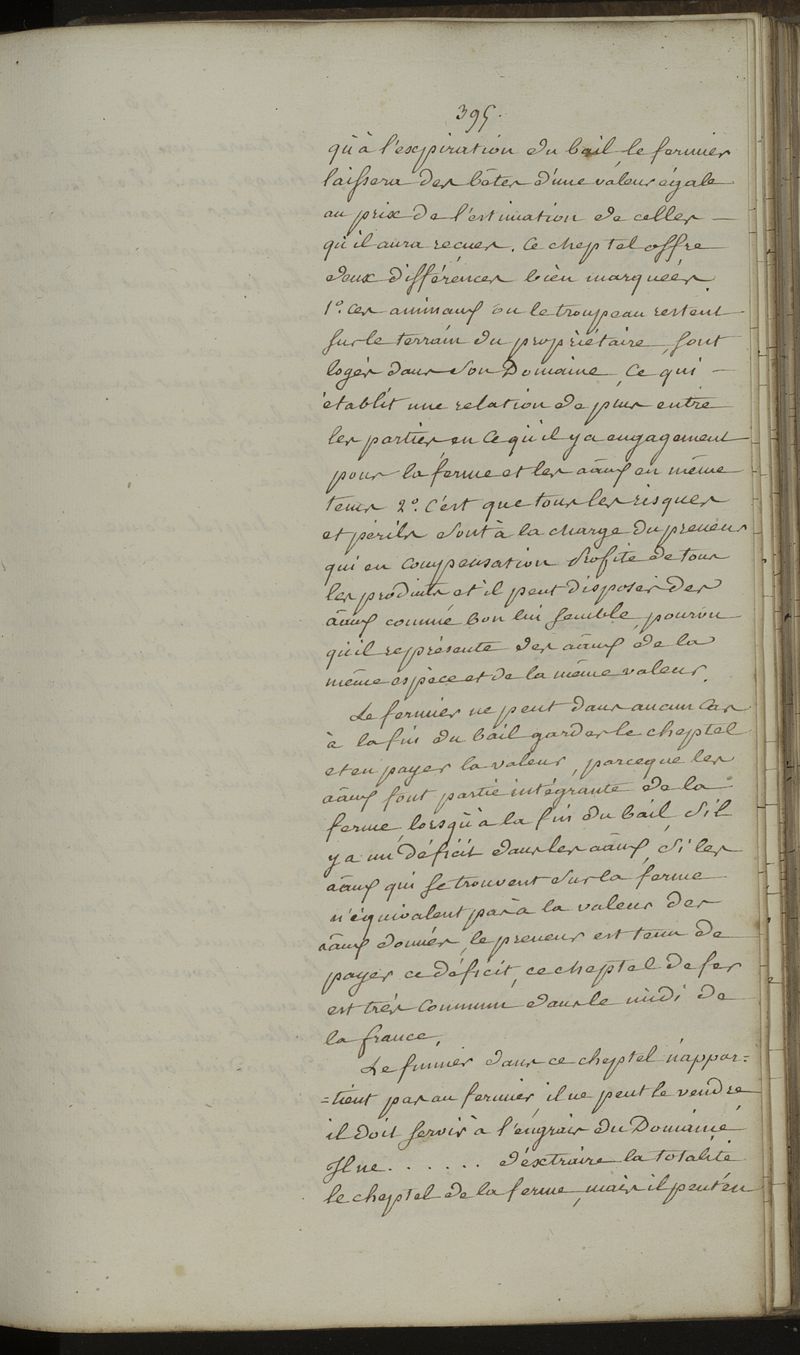 395.
qu'à l'expiration du bail le fermier
laissera des bêtes d'une valeur égale
au prix de l'estimation de celles —
qu'il aura recues. Ce cheptel offre
deux différences bien marquées.
1°. Ces animaux ou le troupeau restent
sur le terrain du propriétaire, sont
logés dans son Domaine, Ce qui —
établit une relation de plus entre
les parties, en ce qu'il y a engagement
pour la ferme et les aãux en même
tems 2°. C'est que tous les risques
et périls sont à la charge du preneur
qui en compensation profite de tous
les produits et il peut disposer des
aãux comme bon lui semble, pourvu
qu'il représente des aãux de la
même espèce et de la même valeur.
Le fermier ne peut dans aucun cas
à la fin du bail garder le cheptel
et en payer la valeur, parceque les
aãux font partie intégrante de la
ferme, lorsqu'à la fin du bail s'il
y a un déficit dans les aãux, si les
aãux qui se trouvent sur la ferme
n'équivalent pas à la valeur des
aãux donnés, le preneur est tenu de
payer ce déficit, ce cheptel de fer
est très commun dans le midi de
la france,
Le fumier dans ce cheptel n'appar=
=tient pas au fermier, il ne peut le vendre
il doit servir à l'engrais du Domaine
Il ne . . . . . . d'éxtraire la totalité
le cheptel de la ferme, mais il peut en